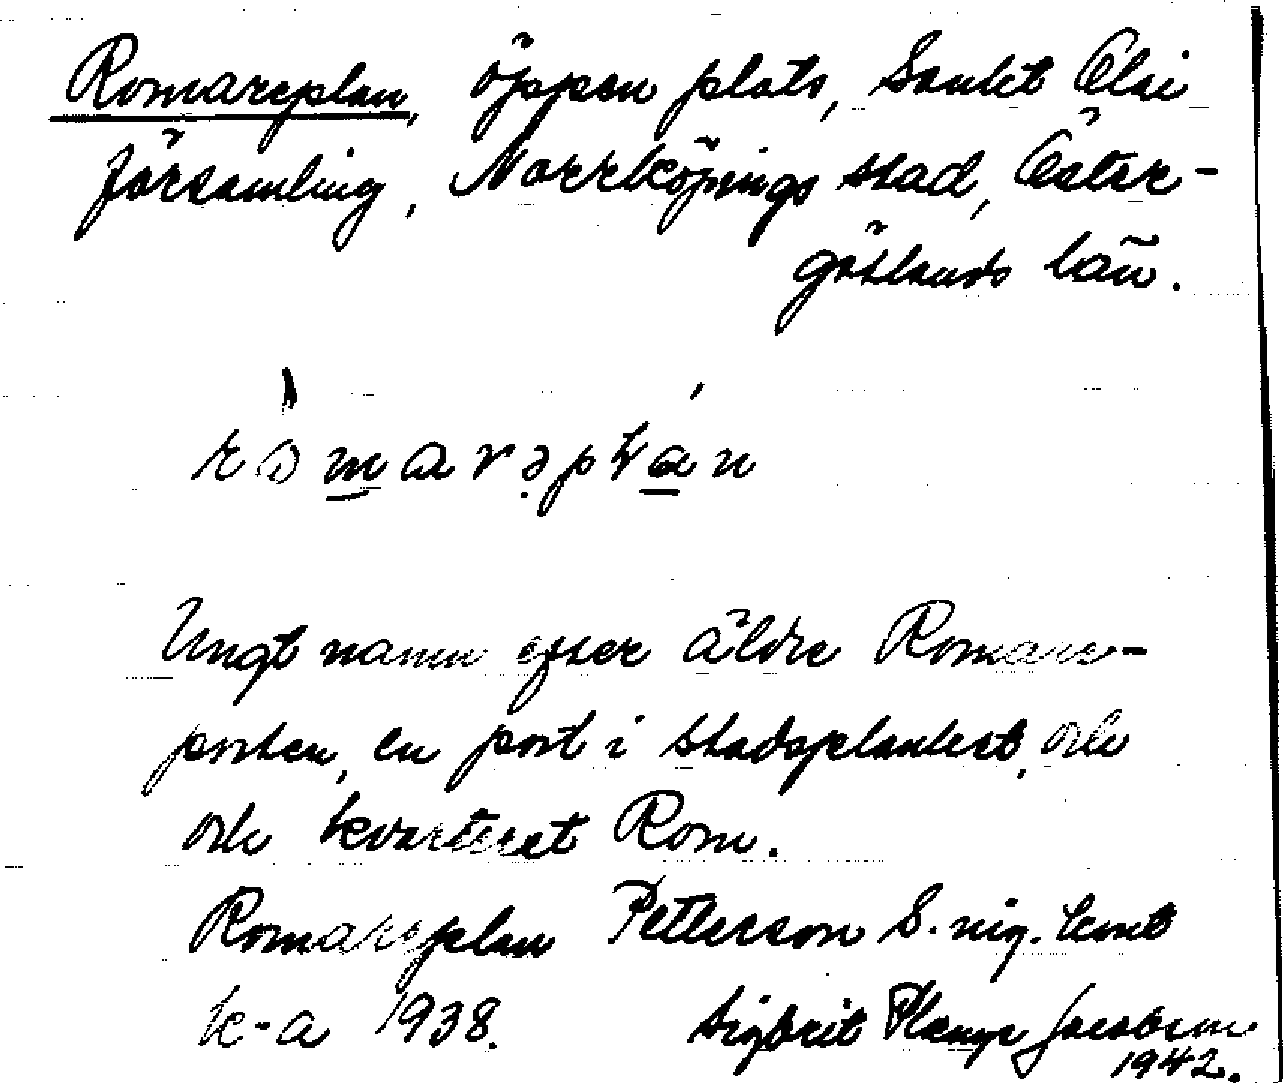 Romareplan, öppen plats, Sankt Olai
församling, Norrköpings stad, Öster-
götlands län.
ròmarəplán
Ungt namn efter äldre Romare-
porten, en port i stadsplanket, och
och kvarteret Rom.
Romareplan Petterson S.
k-a 1938. Sigbrit Jacobson
1942.